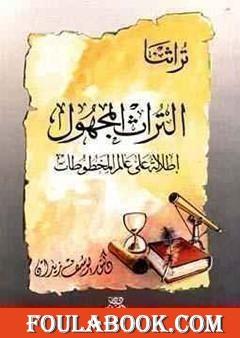 تراثنا
التراث المجهول
إطلالة على عالم المخطوطات
دكتور يوسف زيدان
FOULABOOK.COM